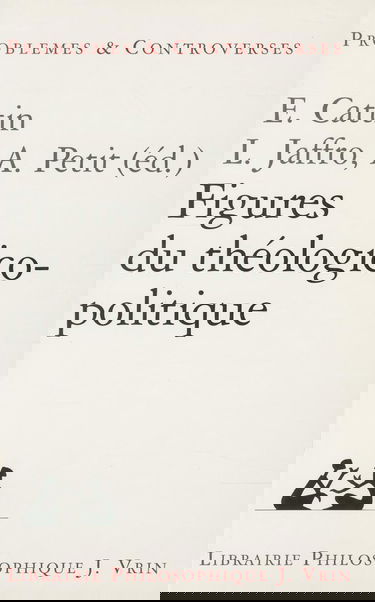 PROBLEMES & CONTROVERSES
E. Cattin
L. Jaffro, A. Petit (éd.)
Figures
du théologico-
politique
LIBRAIRIE PHILOSOPHIQUE J. VRIN